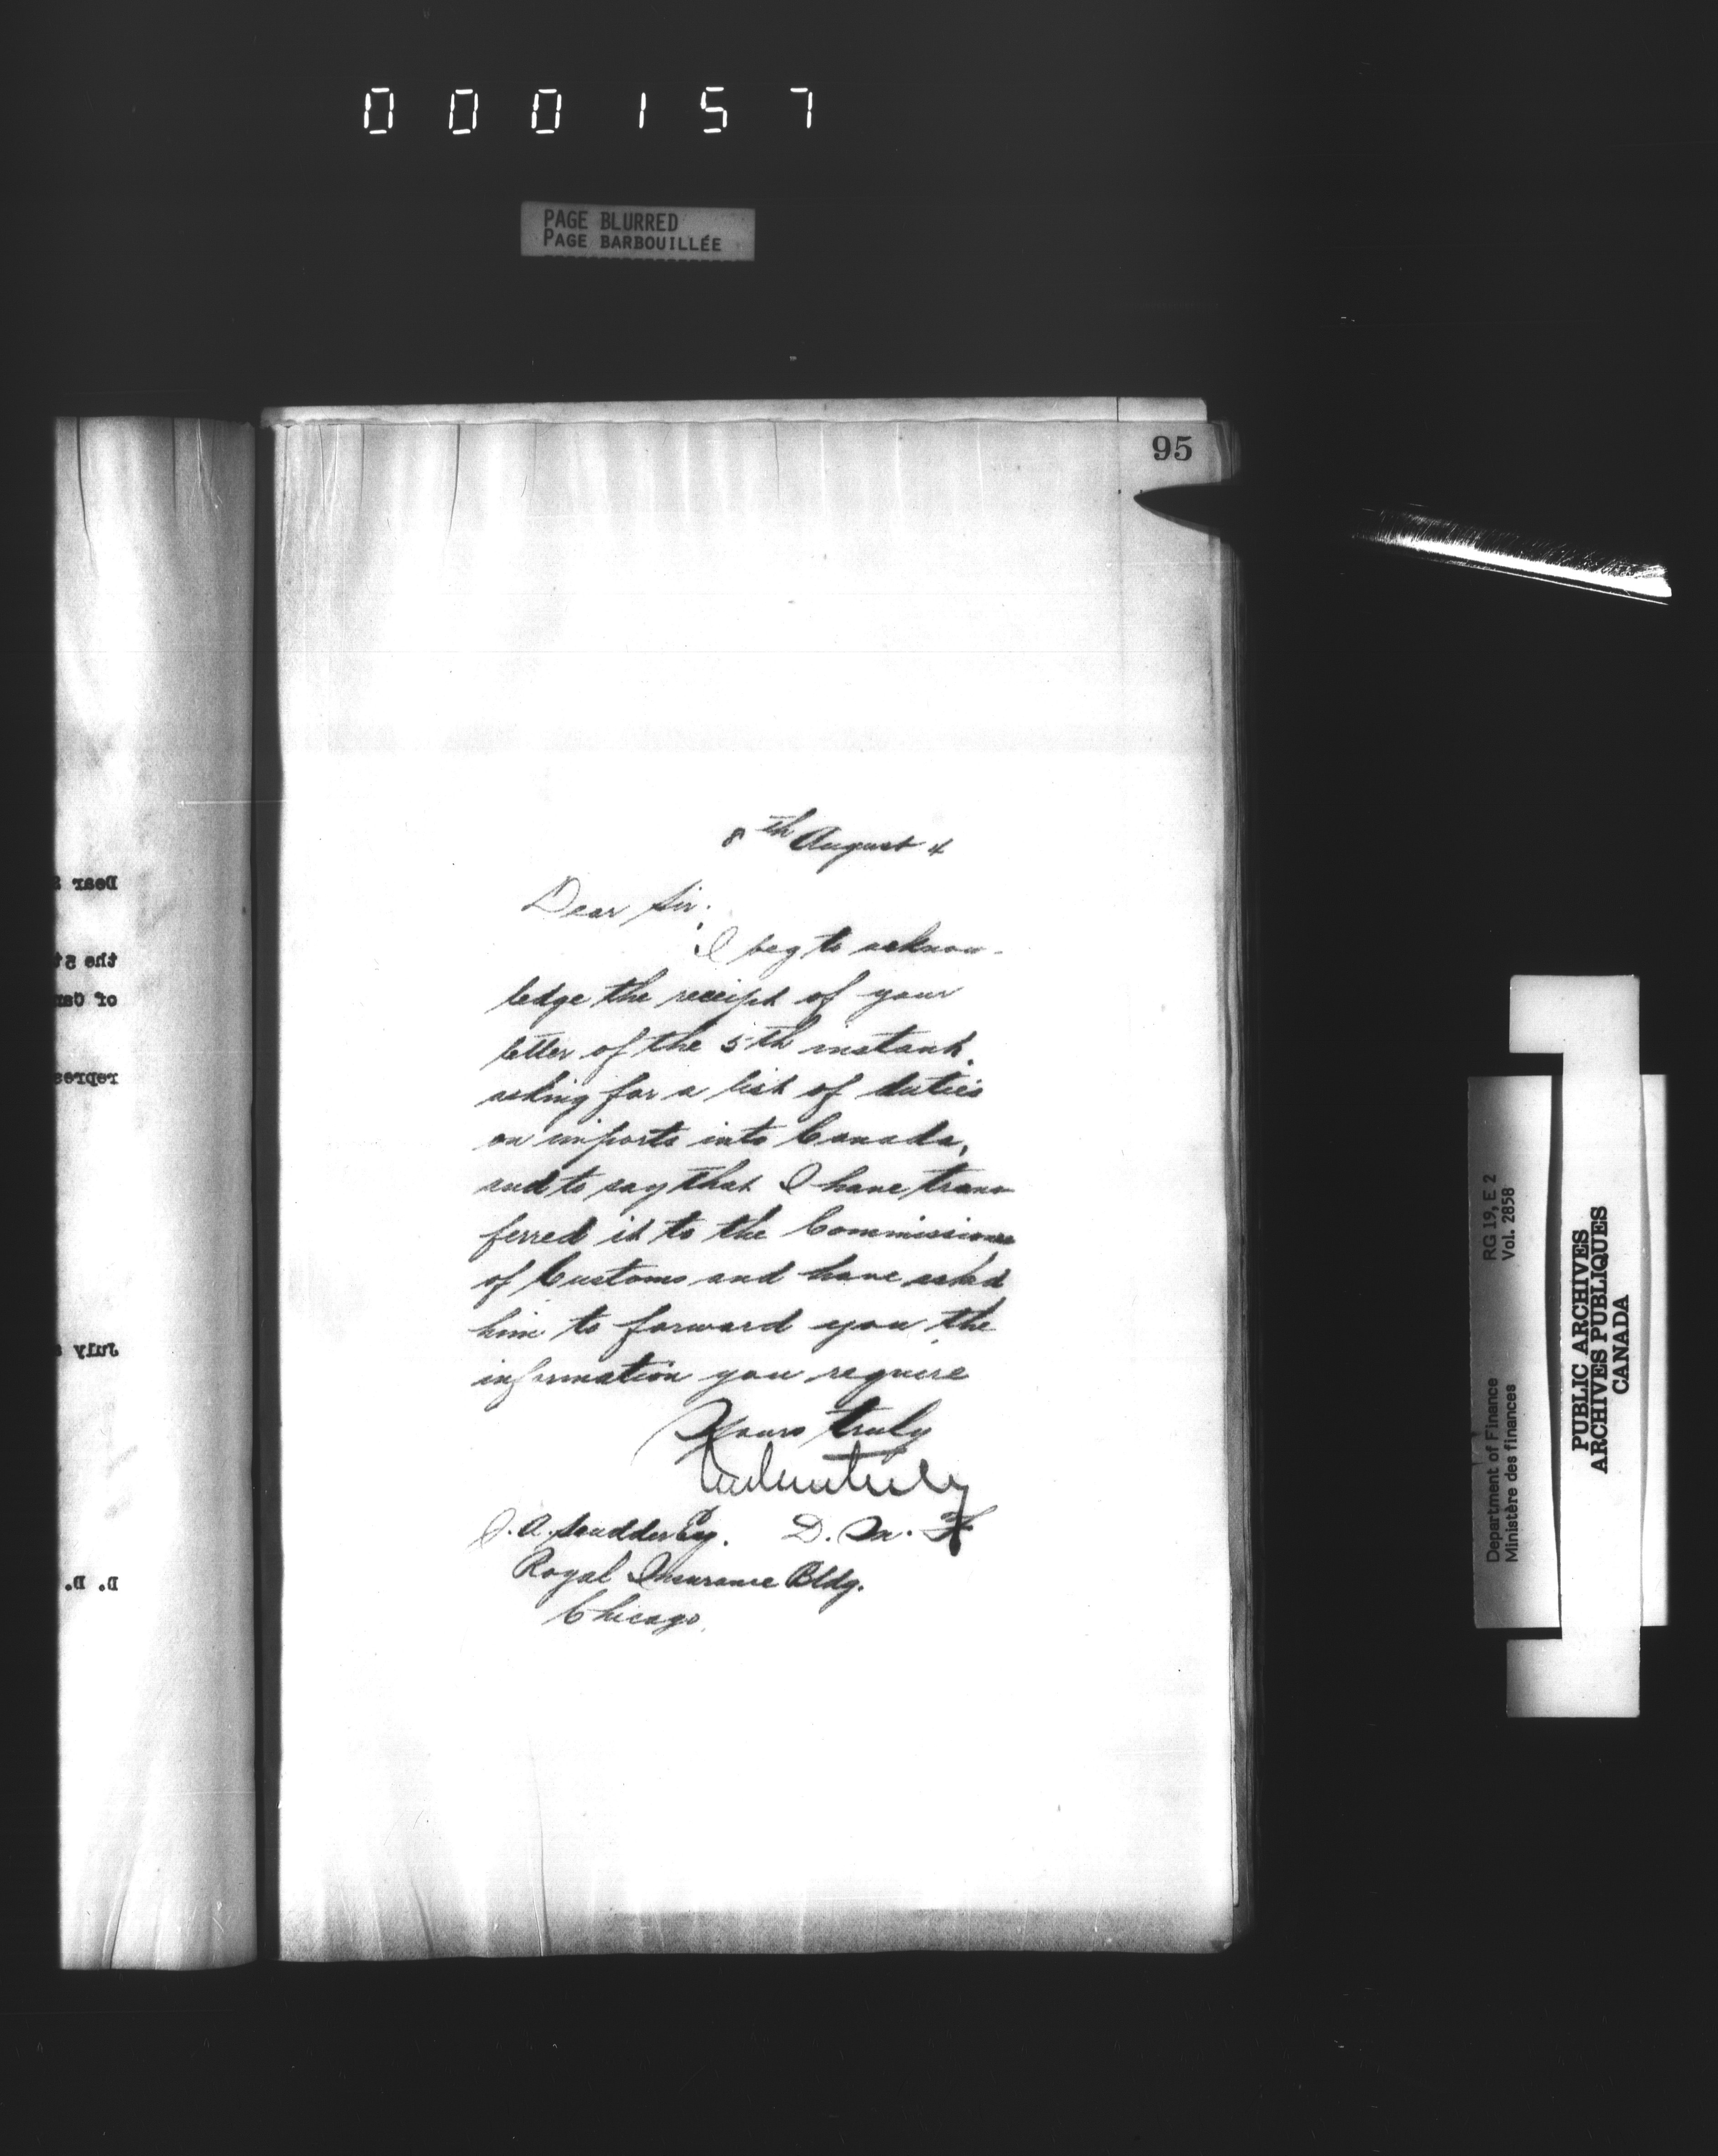 000157
PAGE BLURRED
PAGE BARBOUILLÉE
95
8th August 4
Dear Sir.
I beg to acknow-
ledge the receipt of your
letter of the 5th instant.
asking for a list of duties
on imports into Canada,
and to say that I have trans
ferred it to the Commissioner
of Customs and have asked
him to forward you the
information you require
Yours truly
D. M. F
J. A. Scudder Esq.
Royal Insurance Bldg.
Chicago.
Dear
the 5t
of Can
repres
July
D. D.
RG 19, E 2
Vol. 2858
Department of Finance
Ministère des finances
PUBLIC ARCHIVES
ARCHIVES PUBLIQUES
CANADA